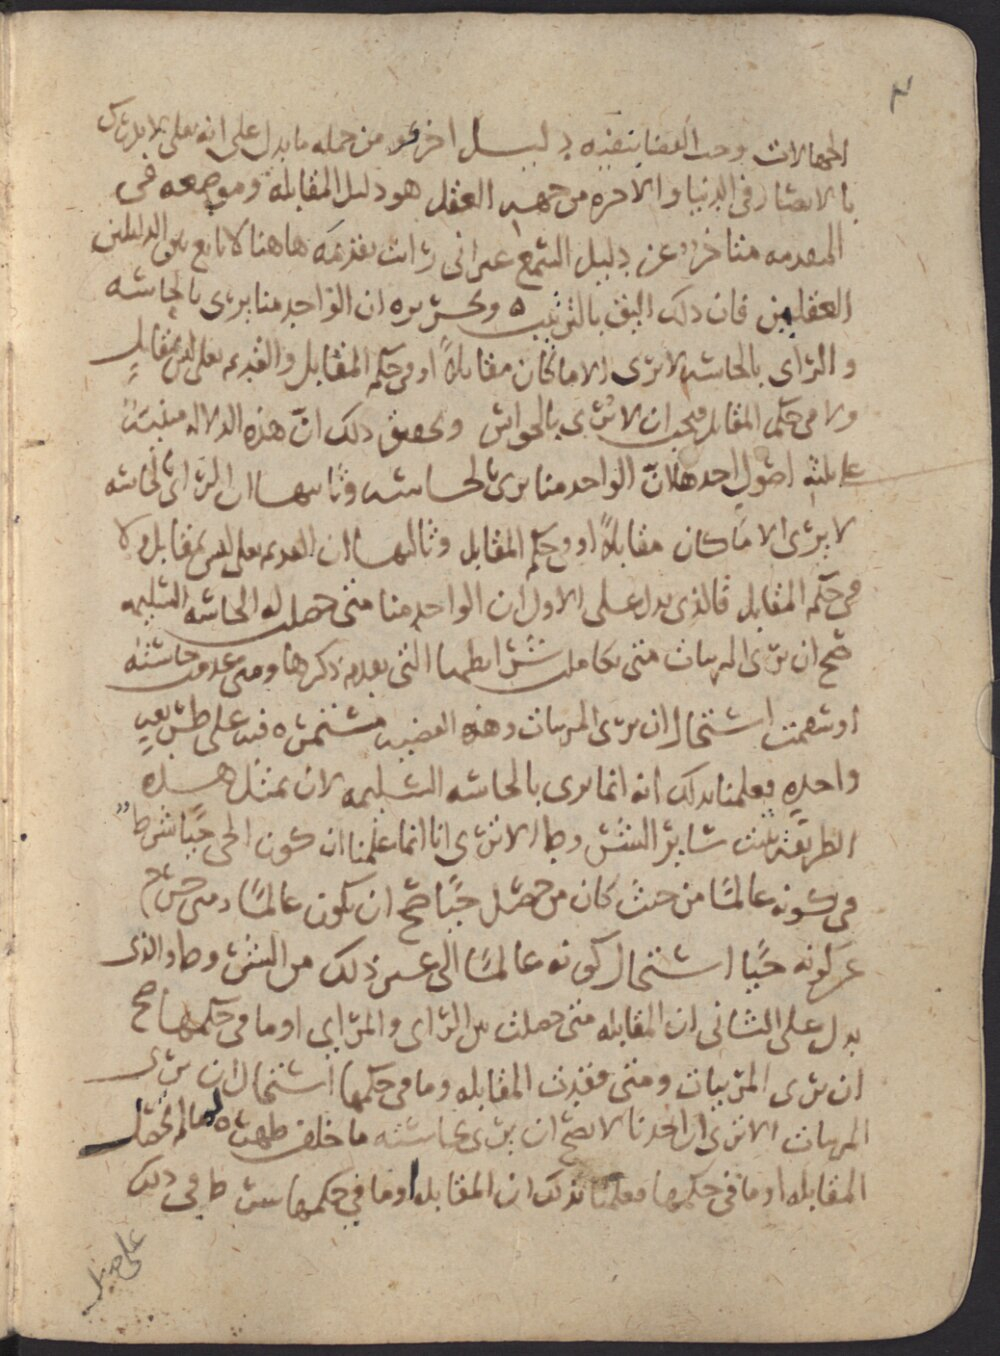 الجهالات وجب القضا بنفيه دليل اخر من جمله ما يدل على انه تعلى لا يدرك
بالابصار فى الدنيا والاخره من جهه العقل هو دليل المقابله وموضعه فى
المقدمه متاخر عن دليل السمع غير انى رات تقديمه هاهنا لاتابع بين الدليلين
العقليين فان ذلك اليق بالترتيب وتحريره ان الواحد منا يرى بالحاسه
والراى بالحاسه لا يرى الا ما كان مقابلاً او فى حكم المقابل والقديم تعلى ليس بمقابلٍ
ولا فى حكم المقابل فيجب ان لا يُرى بالحواس وتحقيق ذلك انّ هذه الدلاله مبنيه
على ثلثه اصول احدها انّ الواحد منا يرى بالحاسه وثانيها ان الراى بالحاسه
لا يرى الا ما كان مقابلاً او فى حكم المقابل وثالثها ان القديم تعلى ليس بمقابل ولا
فى حكم المقابل فالذى يدل على الاول ان الواحد منا متى حصلت له الحاسه السليمه
صح ان يرى المرييات متى تكاملت شرايطها التى تقدم ذكرها ومتى عدمت حاسته
او سقمت استحال ان يرى المرييات وهذه القضيه مستمره فيه على طريقهٍ
واحدهٍ فعلمنا بذلك انه انما يرى بالحاسه السليمه لان بمثل هذه
الطريقه يثبت ساير الشروط الا ترى انا انما علمنا ان كون الحى حيًا شرط
فى كونه عالمًا من حيث كان من حصل حيًا صح ان يكون عالمًا ومتى خرج
عن كونه حيًا استحال كونه عالمًا الى غير ذلك من الشروط والذى
يدل على الثانى ان المقابله متى حصلت بين الراى والمراى او ما فى حكمها صح
ان يرى المرييات ومتى فقدت المقابله وما فى حكمها استحال ان يرى
المرييات الا ترى ان احدنا لا يصح ان يرى بحاسته ما خلف ظهره لما لم تحصل
المقابله او ما فى حكمها فعلمنا بذلك ان المقابله او ما في حكمها شرط فى ذلك
على